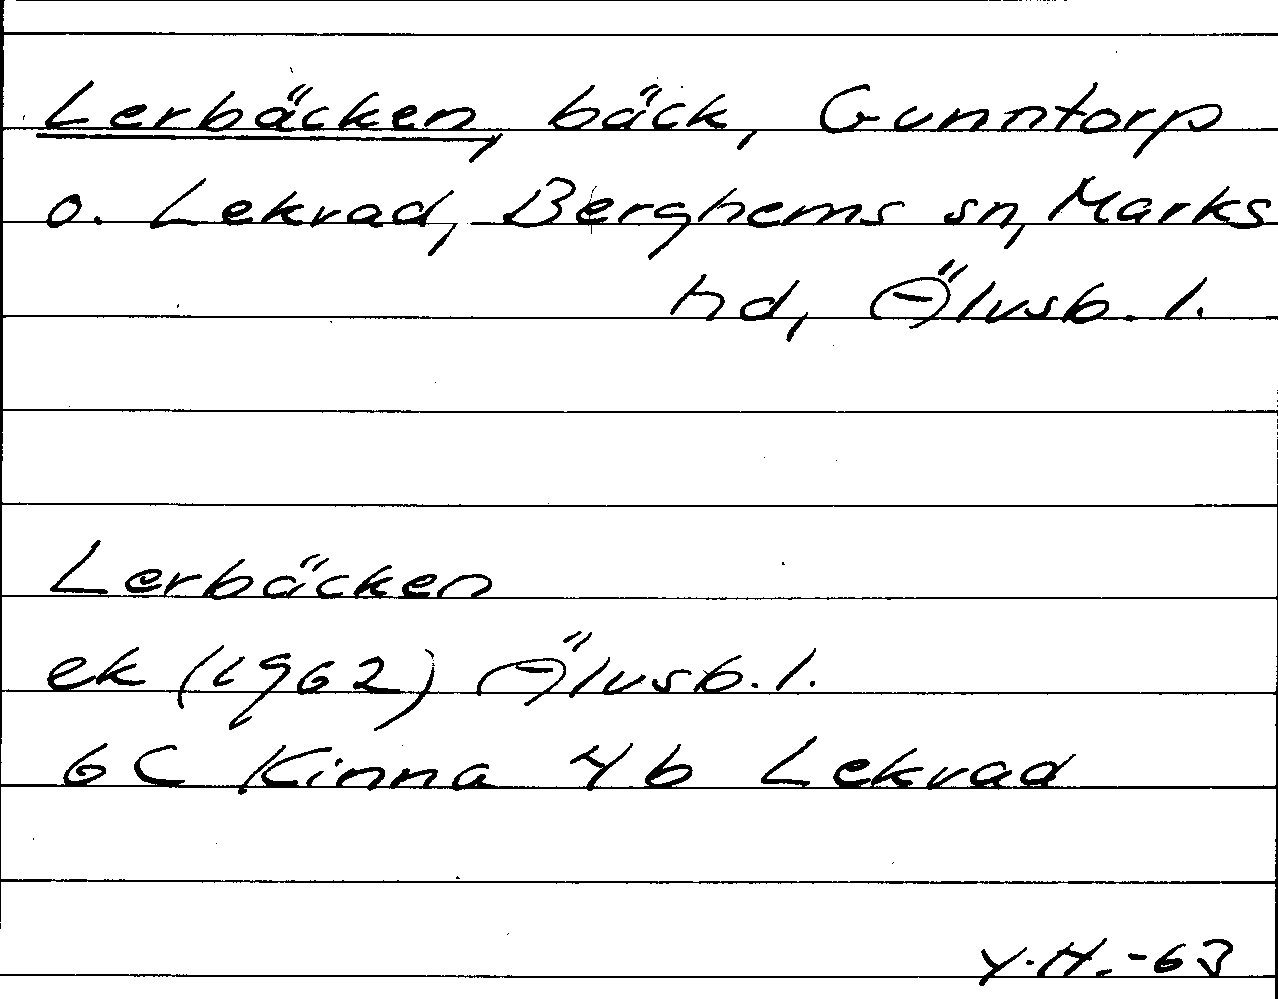 Lerbäcken, bäck, Gunntorp
o. Lekvad, Berghems sn, Marks
hd, Älvsb. l.
Lerbäcken
ek (1962) Älvsb. l.
6 C Kinna 4 b Lekvad
Y.H. -63